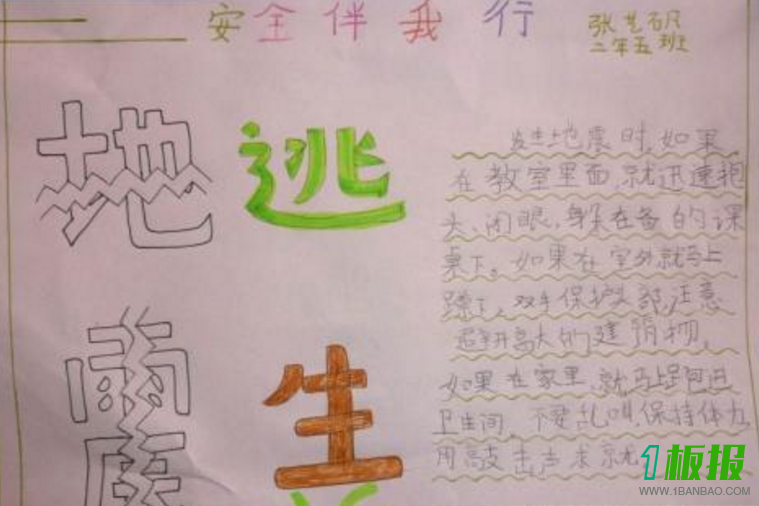 安全伴我行
张艺砚
二年五班
地震
逃生
发生地震时,如果
在教室里面,就迅速抱
头、闭眼,身躲在各自的课
桌下。如果在室外就马上
蹲下,双手保护头部,注意
避开高大的建筑物。
如果在家里,就马上跑进
卫生间,不要乱叫,保持体力
用敲击声求
1板报
WWW.1BANBAO.COM